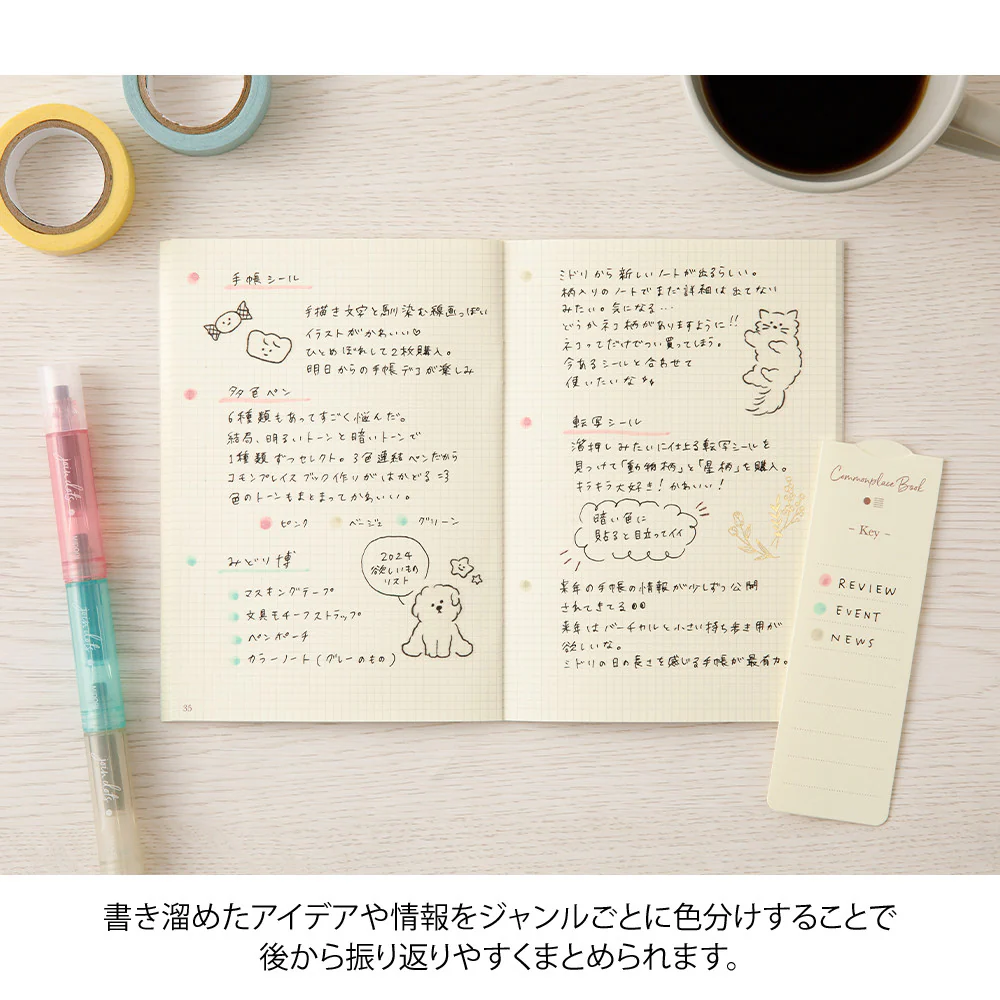 手帳シール
手描き文字と馴染む線画っぽい
イラストがかわいい♡
ひとめぼれして2枚購入。
明日からの手帳デコが楽しみ
多色ペン
6種類もあってすごく悩んだ。
結局、明るいトーンと暗いトーンで
1種類ずつセレクト。3色連結ペンだから
コモンプレイスブック作りがはかどる
色のトーンもまとまってかわいい。
ピンク ベージュ グリーン
みどり博
マスキングテープ
文具モチーフストラップ
ペンポーチ
カラーノート(グレーのもの)
2024
欲しいもの
リスト
35
ミドリから新しいノートが出るらしい。
柄入りのノートでまだ詳細は出てない
みたい。気になる…
どうかネコ柄がありますように!!
ネコってだけでつい買ってしまう。
今あるシールと合わせて
使いたいな
転写シール
箔押しみたいに仕上る転写シールを
見つけて「動物柄」と「星柄」を購入。
キラキラ大好き!かわいい!
暗い色に
貼ると目立ってイイ
来年の手帳の情報が少しずつ公開
されてきてる
来年はバーチカルと小さい持ち歩き用が
欲しいな。
ミドリの日の長さを感じる手帳が最有力。
Commonplace Book
- Key -
REVIEW
EVENT
NEWS
join dots
join dots
join dots
書き溜めたアイデアや情報をジャンルごとに色分けすることで
後から振り返りやすくまとめられます。